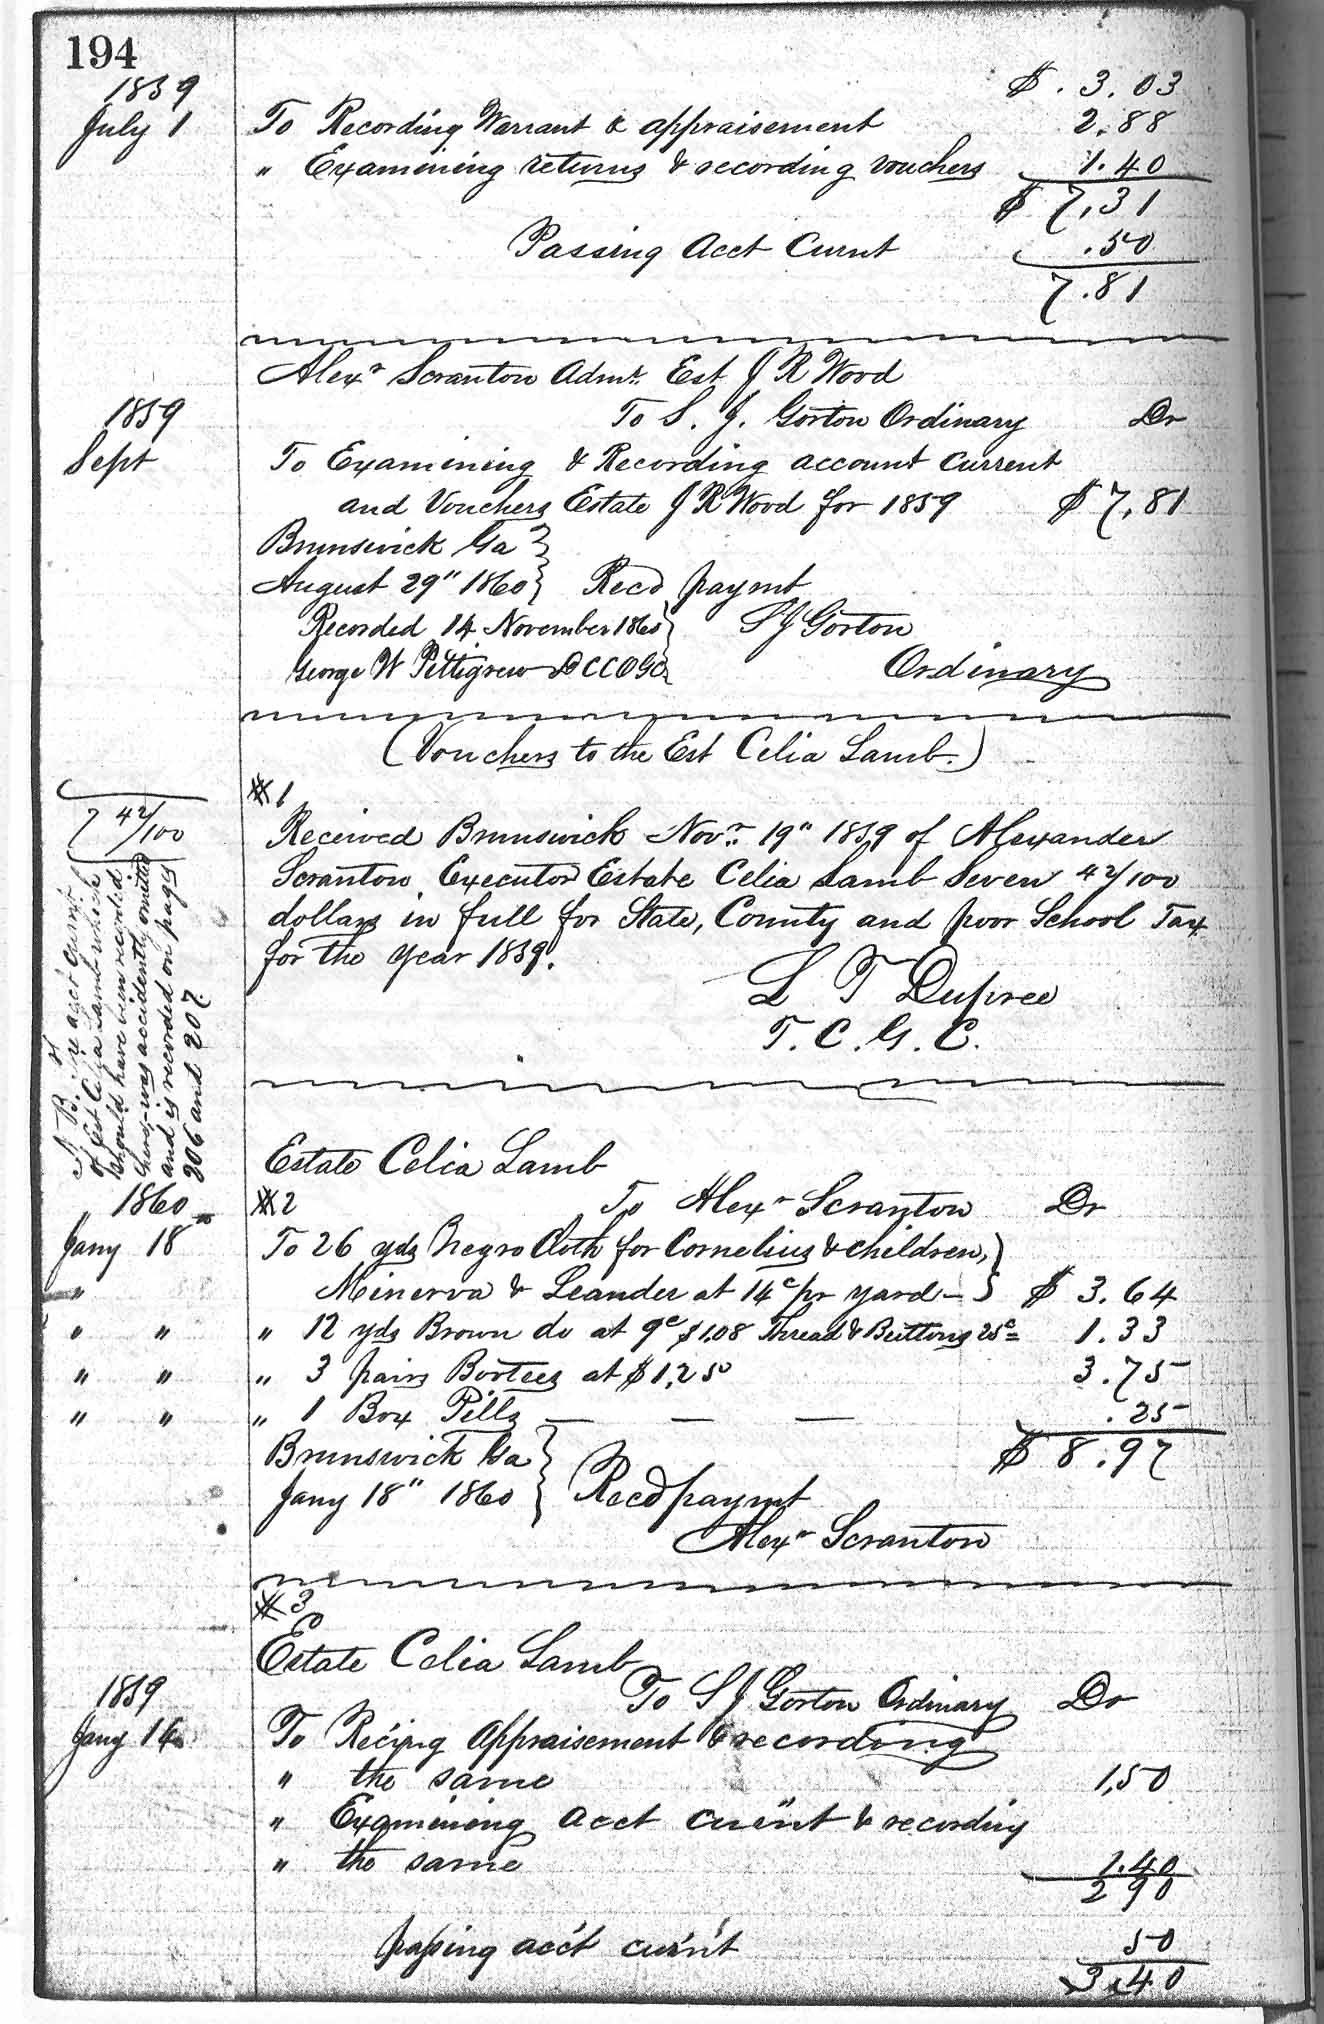 194
1859
$ . 3.03
July 1 To Recording Warrant & appraisement 2.88
" Examining returns & recording vouchers 1.40
$ 7,31
Passing Acct Curnt .50
7.81
Alexr Scranton Admr. Est J R Wood
1859 To S. J. Gorton Ordinary Dr
Sept To Examining & Recording account current
and Vouchers Estate J R Wood for 1859 $ 7,81
Brunswick Ga
August 29" 1860 Recd paymt
Recorded 14 November 1860 S J Gorton
George W Pettigrew DCCOGC Ordinary
(Vouchers to the Est Celia Lamb.)
#1
7 42/100
Received Brunswick Novr. 19" 1859 of Alexander
Scranton Executor Estate Celia Lamb Seven 42/100
dollars in full for State, County and poor School Tax
for the year 1859.
L T Dupree
T. C. G. C.
N. B. The acct curnt
of Est Celia Lamb which
should have been recorded
here, was accidently omitted
and is recorded on pages
206 and 207
Estate Celia Lamb
1860 #2 To Alexr Scranton Dr
Jany 18 To 26 yds Negro Cloth for Cornelius & children,
" Minerva & Leander at 14c pr yard - $ 3.64
" " " 12 yds Brown do at 9c $1,08 Thread & Buttons 25c = 1.33
" " " 3 pairs Bootees at $1,25 3.75
" " " 1 Box Pills — — — .25
Brunswick Ga $ 8.97
Jany 18" 1860 Recd paymt
Alexr Scranton
#3
Estate Celia Lamb
1859 To S J Gorton Ordinary Dr
Jany 14 To Recipg Appraisement & recording
" the same 1,50
" Examining acct curnt & recording
" the same 1.40
2 90
passing acct curnt 50
3.40